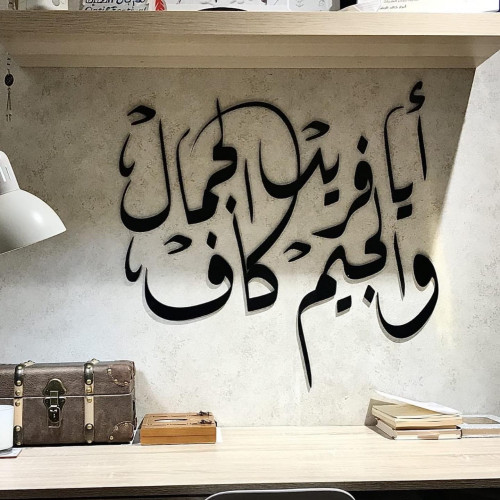 أيا فريد الجمال
والجيم كاف